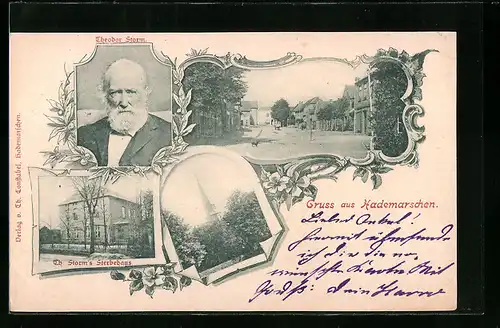 Theodor Storm.
Verlag v. Th. Constabel, Hademarschen.
Th. Storm's Sterbehaus
Gruss aus Hademarschen.
Lieber Onkel!
Hiermit übersende
ich dir die ge-
wünschte Karte. Mit
Gruß: Dein